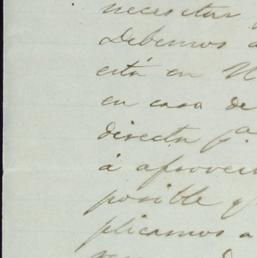 necesitar
Debemos a
está en N
en casa de
directa p.ª
á aprovec
posible q
plicamos a